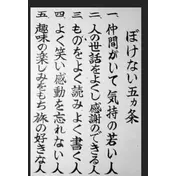 ぼけない五ヵ条
一 仲間がいて気持の若い人
二 人の世話をよくし感謝のできる人
三 ものをよく読みよく書く人
四 よく笑い感動を忘れない人
五 趣味の楽しみをもち旅の好きな人